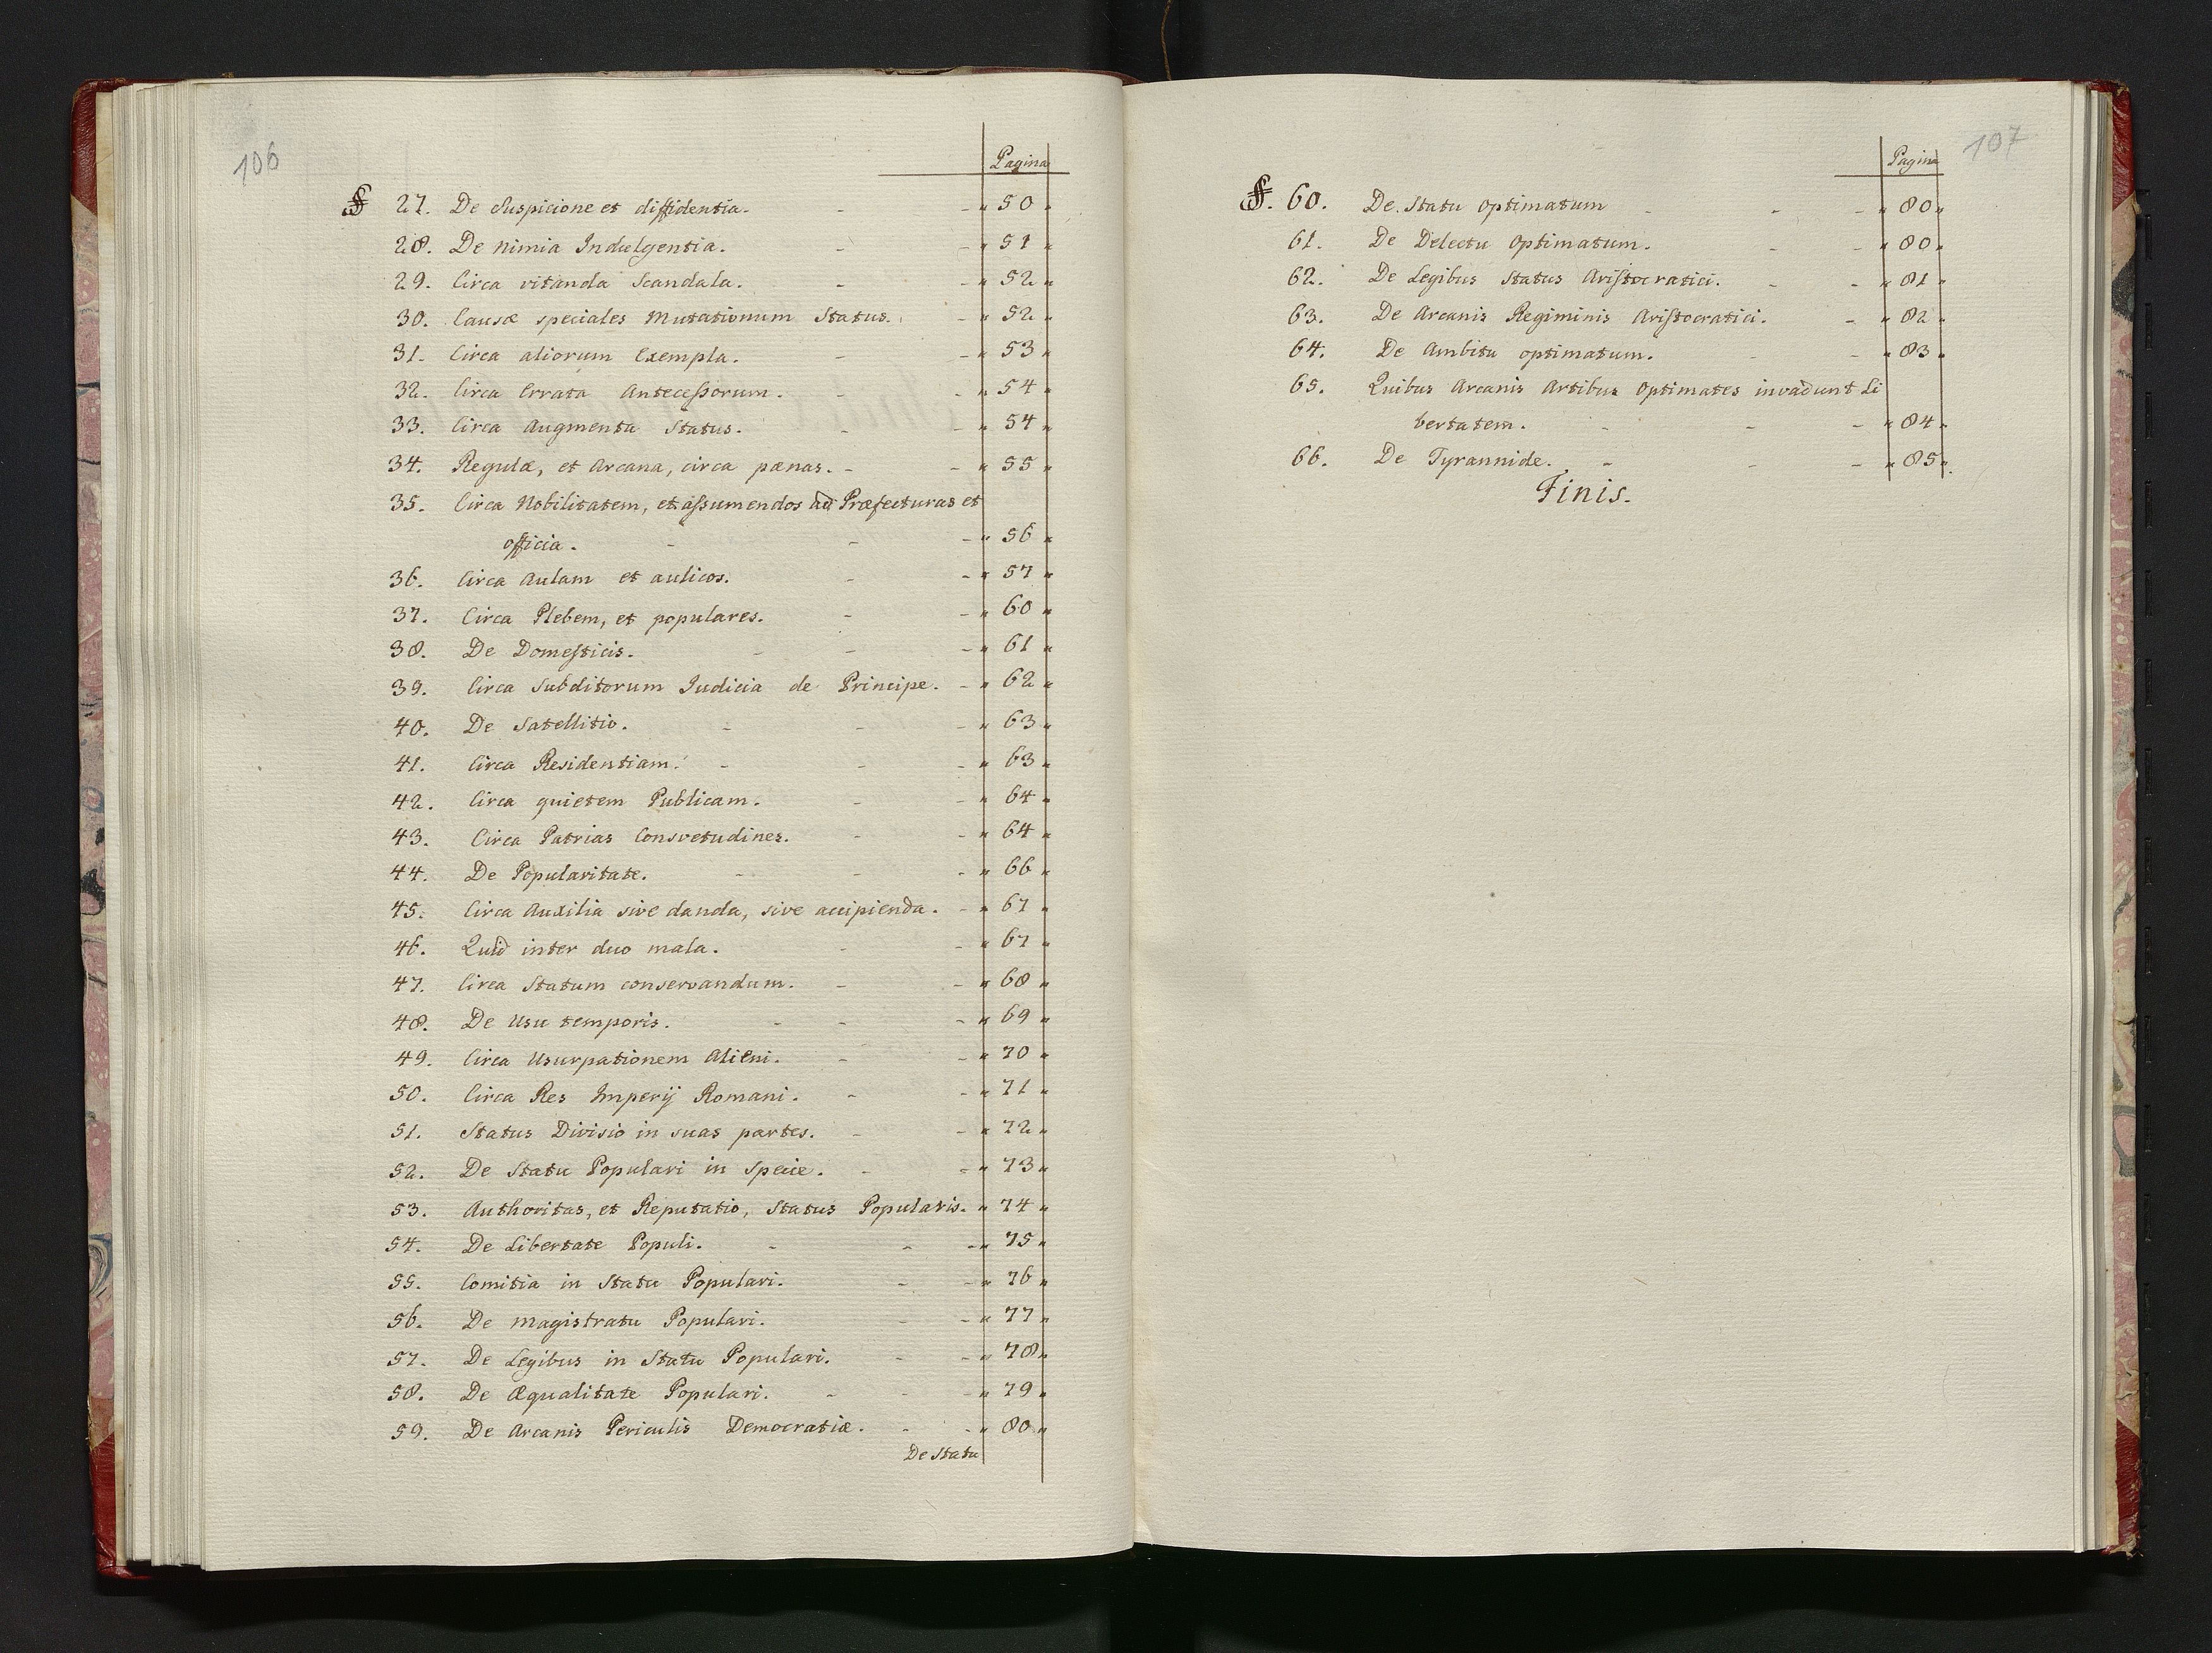 106
Pagina
§ 27. De Suspicione et diffidentia. - - " 50 "
28. De nimia Indulgentia. - - " 51 "
29. Circa vitanda Scandala. - - " 52 "
30. Causæ speciales Mutationum Status. - " 52 "
31. Circa aliorum Exempla. - - " 53 "
32. Circa Errata Antecessorum. - - " 54 "
33. Circa Augmenta Status. - - " 54 "
34. Regulæ, et Arcana, circa pænas. - - " 55 "
35. Circa Nobilitatem, et assumendos ad Præfecturas et
officia. - - - " 56 "
36. Circa Aulam et aulicos. - - " 57 "
37. Circa Plebem, et populares. - - " 60 "
38. De Domesticis. - - - " 61 "
39. Circa Subditorum Iudicia de Principe. - " 62 "
40. De Satellitio. - - - " 63 "
41. Circa Residentiam. - - - " 63 "
42. Circa quietem Publicam. - - " 64 "
43. Circa Patrias Consvetudines. - - " 64 "
44. De Popularitate. - - - " 66 "
45. Circa Auxilia sive danda, sive accipienda. - " 67 "
46. Quid inter duo mala. - - " 67 "
47. Circa Statum conservandum. - - " 68 "
48. De Usu temporis. - - - " 69 "
49. Circa Usurpationem Alieni. - - " 70 "
50. Circa Res Imperij Romani. - - " 71 "
51. Status Divisio in suas partes. - - " 72 "
52. De Statu Populari in Specie. - - " 73 "
53. Authoritas, et Reputatio, Status Popularis. " 74 "
54. De Libertate Populi. - - - " 75 "
55. Comitia in Statu Populari. - - " 76 "
56. De Magistratu Populari. - - " 77 "
57. De Legibus in Statu Populari. - - " 78 "
58. De Æqualitate Populari. - - - " 79 "
59. De Arcanis Periculis Democratiæ. - - " 80 "
De Statu
107
Pagina
§. 60. De Statu Optimatum - - - " 80 "
61. De Delectu Optimatum. - - " 80 "
62. De Legibus Status Aristocratici. - - " 81 "
63. De Arcanis Regiminis Aristocratici. - " 82 "
64. De Ambitu optimatum. - - " 83 "
65. Quibus Arcanis Artibus Optimates invadunt Li
bertatem. - - - " 84 "
66. De Tyrannide. - - - " 85 "
Finis.